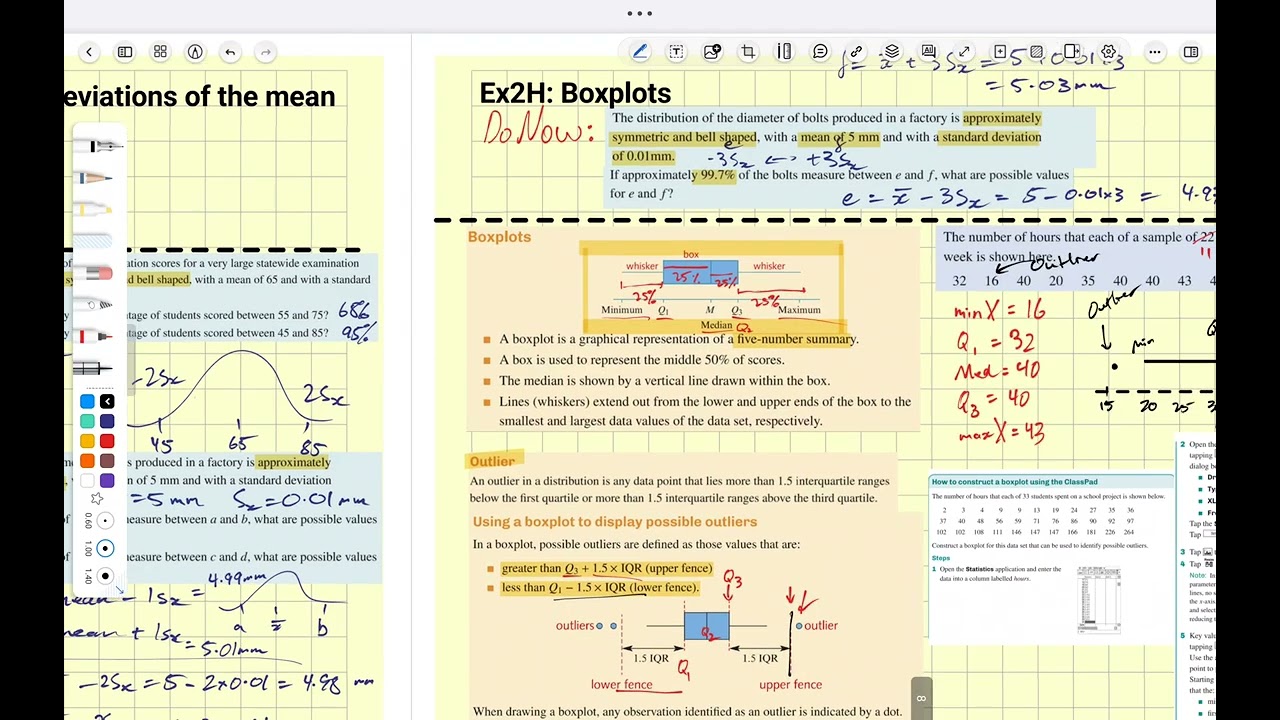 eviations of the mean
of ation scores for a very large statewide examination
d bell shaped, with a mean of 65 and with a standard
tage of students scored between 55 and 75? 68%
tage of students scored between 45 and 85? 95%
-2Sx 2Sx
45 65 85
s produced in a factory is approximately
n of 5 mm and with a standard deviation
=5mm Sx=0.01mm
measure between a and b, what are possible values
measure between c and d, what are possible values
mean - 1Sx = 4.99mm
a x̄ b
mean + 1Sx = 5.01mm
-2Sx = 5-2×0.01 = 4.98 mm
0.60
1.00
1.40
f = x̄ + 3Sx = 5+0.01×3
= 5.03mm
Ex2H: Boxplots
Do Now:
The distribution of the diameter of bolts produced in a factory is approximately
symmetric and bell shaped, with a mean of 5 mm and with a standard deviation
of 0.01mm.
e f
-3Sx ↔ +3Sx
If approximately 99.7% of the bolts measure between e and f, what are possible values
for e and f?
e = x̄ - 3Sx = 5 - 0.01×3 = 4.9
Boxplots
box
whisker whisker
25% 25%
25% 25%
Minimum Q1 M Q3 Maximum
Median Q2
■ A boxplot is a graphical representation of a five-number summary.
■ A box is used to represent the middle 50% of scores.
■ The median is shown by a vertical line drawn within the box.
■ Lines (whiskers) extend out from the lower and upper ends of the box to the
smallest and largest data values of the data set, respectively.
Outlier
An outlier in a distribution is any data point that lies more than 1.5 interquartile ranges
below the first quartile or more than 1.5 interquartile ranges above the third quartile.
Using a boxplot to display possible outliers
In a boxplot, possible outliers are defined as those values that are:
■ greater than Q3 + 1.5 × IQR (upper fence)
■ less than Q1 − 1.5 × IQR (lower fence).
Q3
outliers Q2 outlier
1.5 IQR 1.5 IQR
Q1
lower fence upper fence
When drawing a boxplot, any observation identified as an outlier is indicated by a dot.
8
The number of hours that each of a sample of 22
11
week is shown here.
Outlier
32 16 40 20 40 43
min X = 16
Q1 = 32
Med = 40
Q3 = 40
max X = 43
Outlier
min
15 20 25
How to construct a boxplot using the ClassPad
The number of hours that each of 33 students spent on a school project is shown below.
2 3 4 9 9 13 19 24 27 35 36
37 40 48 56 59 71 76 86 90 92 97
102 102 108 111 146 147 147 166 181 226 264
Construct a boxplot for this data set that can be used to identify possible outliers.
Steps
1 Open the Statistics application and enter the
data into a column labelled hours.
2 Open the
tapping
dialog b
Tap the
3 Tap
4 Tap
Note: In
parameter
lines, no s
the x-axis
and select
reducing t
5 Key valu
tapping
Use the
point to
Starting
that the: